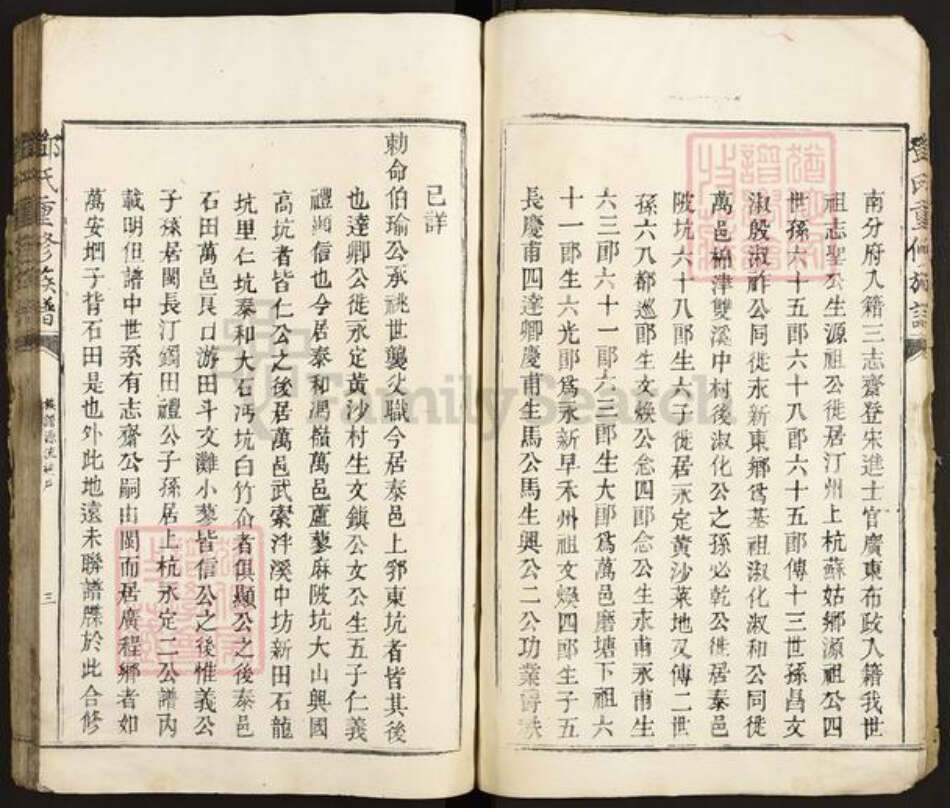 南分府入籍三志齋登宋進士官廣東布政入籍我世
祖志聖公生源祖公徙居汀州上杭蘇姑鄉源祖公四
世孫六十五郎六十八郎六十五郎傳十三世孫昌文
淑殷淑祚公同徙永新東鄉爲基祖淑化淑和公同徙
萬邑柏津雙溪中村後淑化公之孫必乾公徙居泰邑
陂坑六十八郎生六子徙居永定黃沙菜地又傳二世
孫六八郎都巡郎生文煥公念四郎念公生永甫永甫生
六三郎六十一郎六三郎生大郎爲萬邑磨塘下祖六
十一郎生六光郎爲永新早禾州祖文煥四郎生子五
長慶甫四達卿慶甫生馬公馬生興公二公功業爵秩
已詳
勅命伯瑜公承祧世襲父職今居泰邑上鄧東坑者皆其後
也達卿公徙永定黃沙村生文鎮公文公生五子仁義
禮顯信也今居泰和馮嶺萬邑蘆蓼麻陂坑大山興國
高坑者皆仁公之後居萬邑武索泮溪中坊新田石龍
坑里仁坑泰和大石沔坑白竹峃者俱顯公之後泰邑
石田萬邑艮口游田斗文灘小蓼皆信公之後惟義公
子孫居閩長汀鐲田禮公子孫居上杭永定二公譜內
載明但譜中世系有志齋公嗣由閩而居廣程鄉者如
萬安坰子背石田是也外此地遠未聯譜牒於此合修
鄧氏重修族譜
三
Family Search